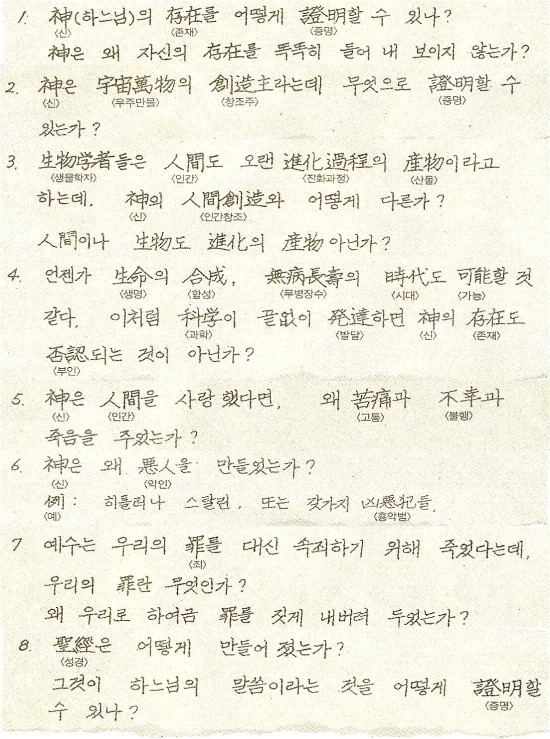 1. 神(하느님)의 存在를 어떻게 證明할 수 있나?
〈신〉 〈존재〉 〈증명〉
神은 왜 자신의 存在를 똑똑히 들어 내 보이지 않는가?
2. 神은 宇宙萬物의 創造主라는데 무엇으로 證明할 수
〈신〉 〈우주만물〉 〈창조주〉 〈증명〉
있는가?
3. 生物学者들은 人間도 오랜 進化過程의 産物이라고
〈생물학자〉 〈인간〉 〈진화과정〉 〈산물〉
하는데, 神의 人間創造와 어떻게 다른가?
〈신〉 〈인간창조〉
人間이나 生物도 進化의 産物 아닌가?
4. 언젠가 生命의 合成, 無病長壽의 時代도 可能할 것
〈생명〉 〈합성〉 〈무병장수〉 〈시대〉 〈가능〉
같다. 이처럼 科学이 끝없이 発達하면 神의 存在도
〈과학〉 〈발달〉 〈신〉 〈존재〉
否認되는 것이 아닌가?
〈부인〉
5. 神은 人間을 사랑했다면, 왜 苦痛과 不幸과
〈신〉 〈인간〉 〈고통〉 〈불행〉
죽음을 주었는가?
6. 神은 왜 惡人을 만들었는가?
〈신〉 〈악인〉
例: 히틀러나 스탈린, 또는 갖가지 凶惡犯들.
〈예〉 〈흉악범〉
7 예수는 우리의 罪를 대신 속죄하기 위해 죽었다는데,
〈죄〉
우리의 罪란 무엇인가?
왜 우리로 하여금 罪를 짓게 내버려 두었는가?
8. 聖經은 어떻게 만들어 졌는가?
〈성경〉
그것이 하느님의 말씀이라는 것을 어떻게 證明할
〈증명〉
수 있나?